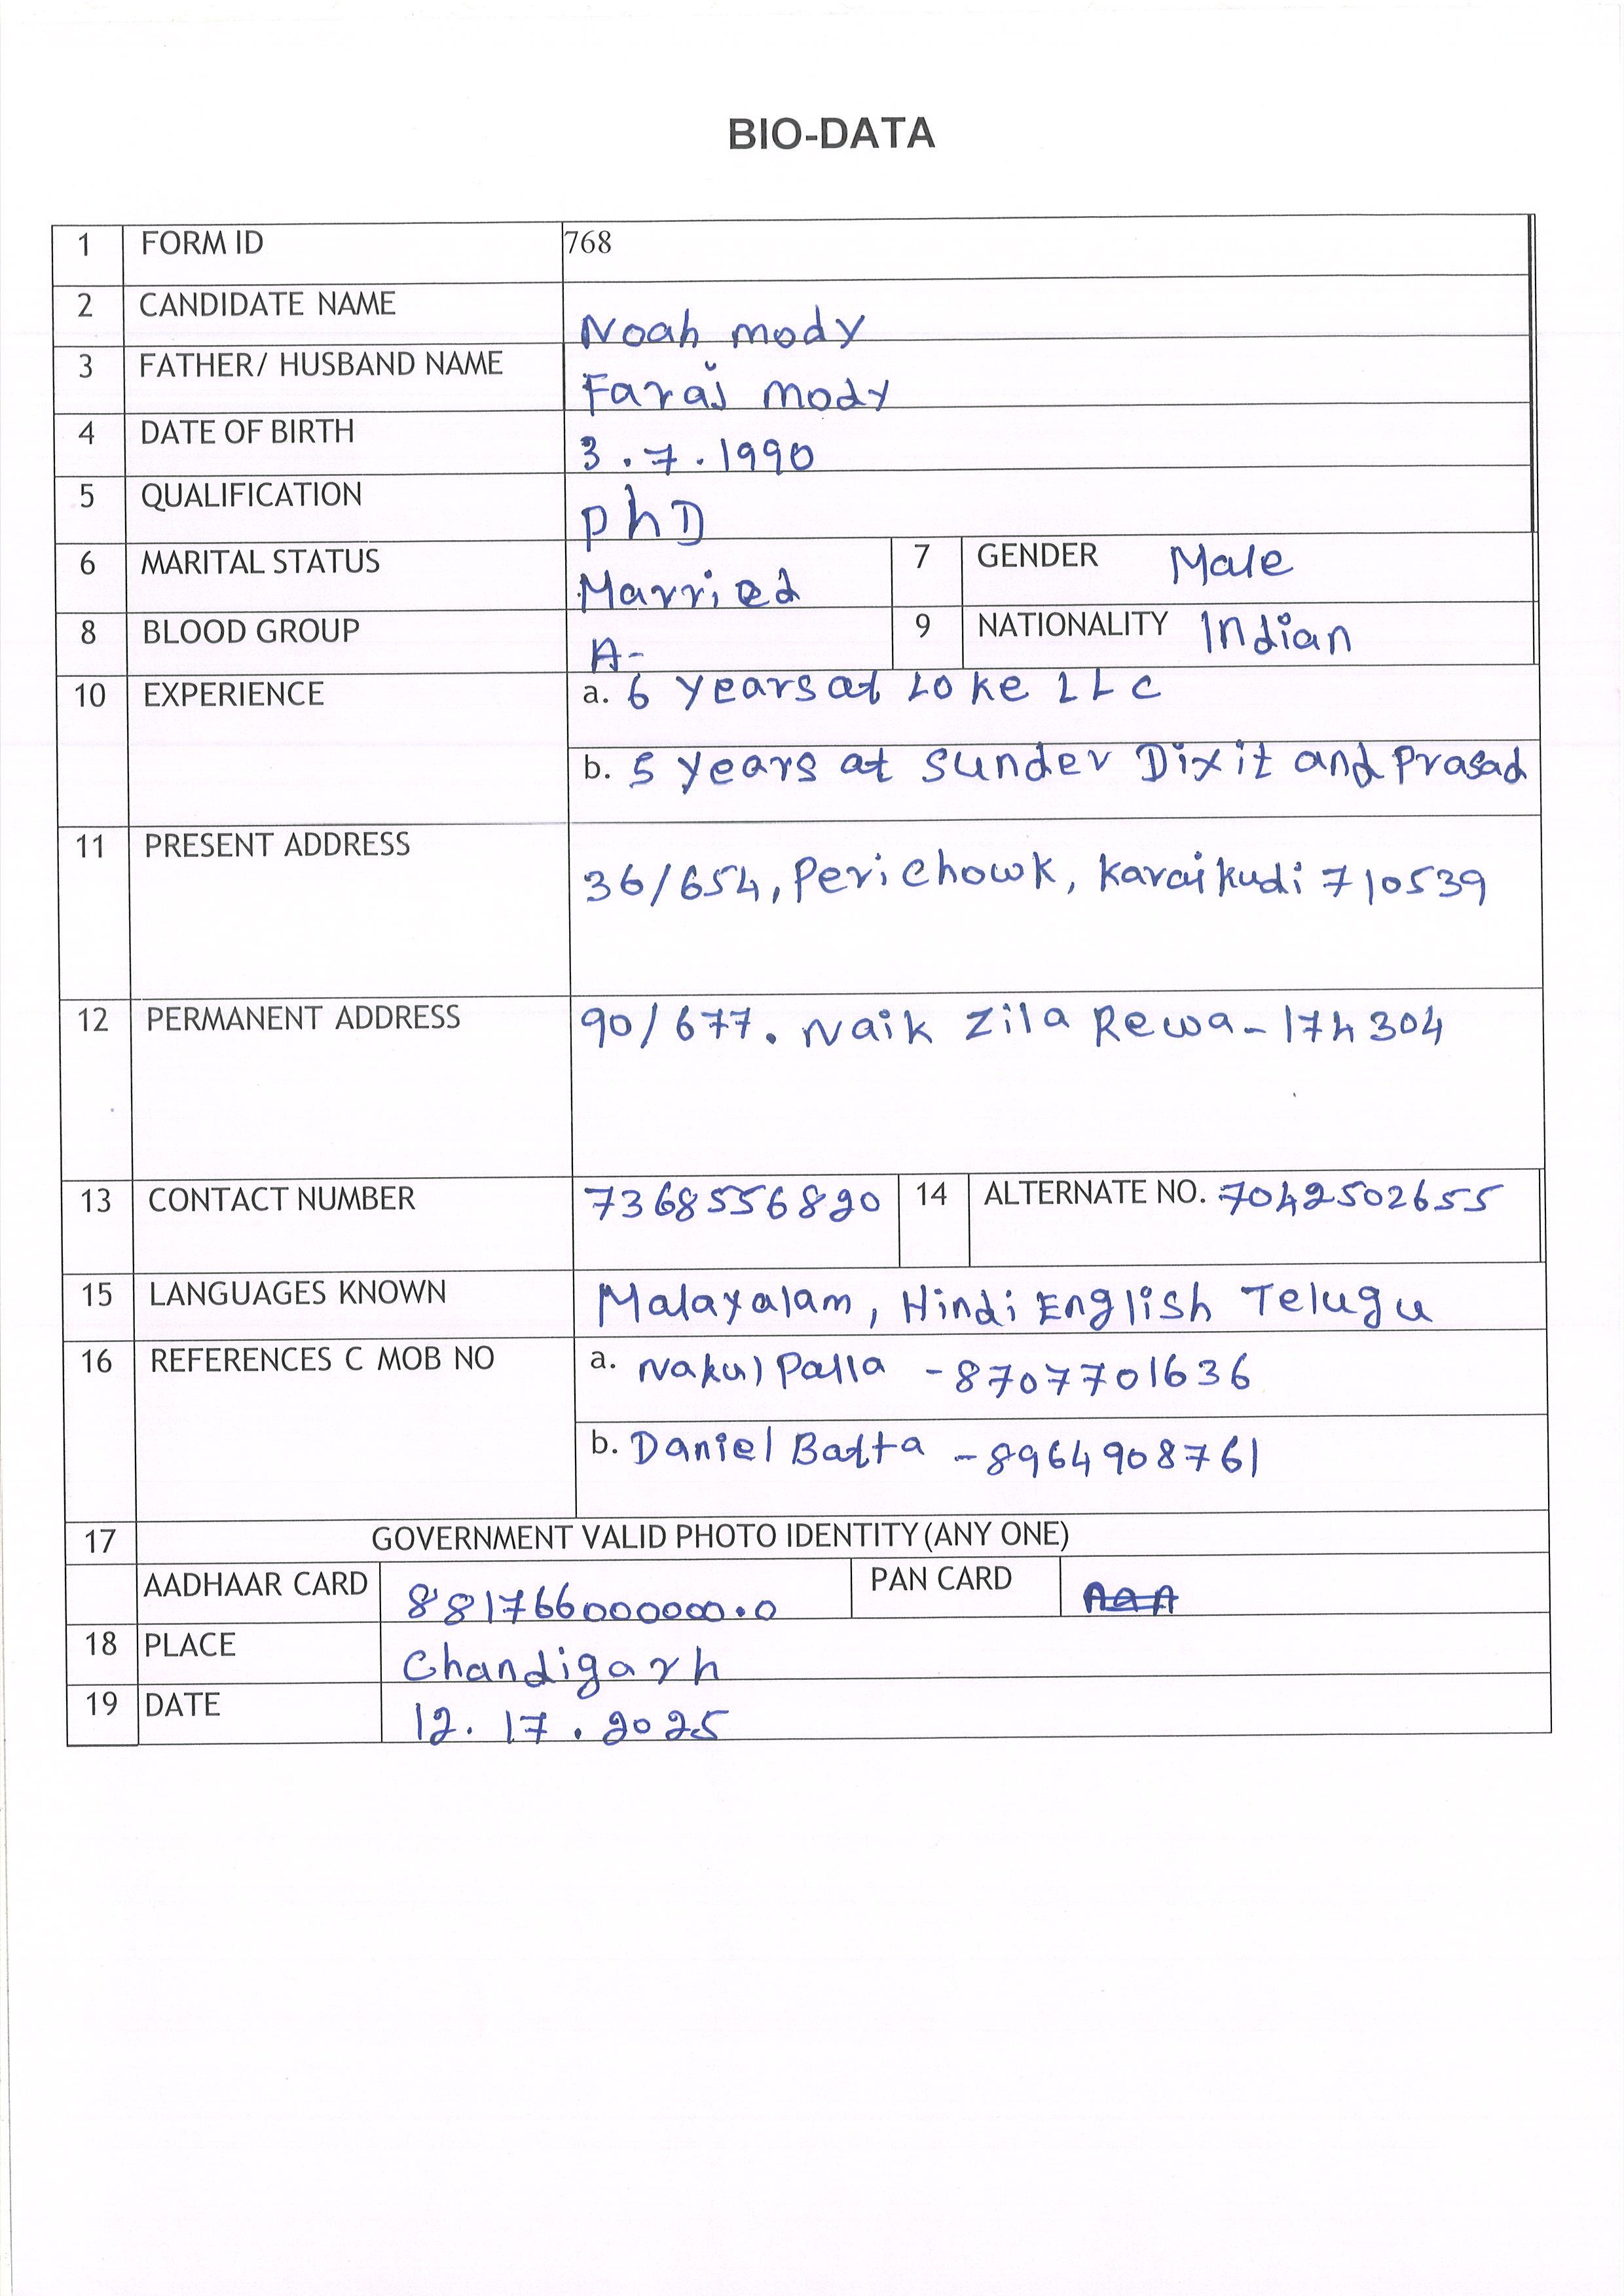 BIO-DATA
1 FORM ID 768
2 CANDIDATE NAME Noah mody
3 FATHER/ HUSBAND NAME Faraj mody
4 DATE OF BIRTH 3.7.1990
5 QUALIFICATION phD
6 MARITAL STATUS Married 7 GENDER Male
8 BLOOD GROUP A- 9 NATIONALITY Indian
10 EXPERIENCE a. 6 years at Loke LLC
b. 5 years at Sunder Dixit and Prasad
11 PRESENT ADDRESS 36/654, Peri Chowk, Karaikudi 710539
12 PERMANENT ADDRESS 90/677. Naik Zila Rewa-174304
13 CONTACT NUMBER 7368556820 14 ALTERNATE NO. 7042502655
15 LANGUAGES KNOWN Malayalam, Hindi English Telugu
16 REFERENCES C MOB NO a. Nakul Palla -8707701636
b. Daniel Batta -8964908761
17 GOVERNMENT VALID PHOTO IDENTITY (ANY ONE)
AADHAAR CARD 881766000000.0 PAN CARD
18 PLACE Chandigarh
19 DATE 12.17.2025